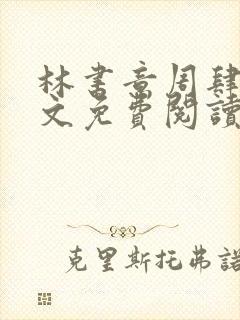 林書音周肆
文免費閱讀
克里斯托弗諾